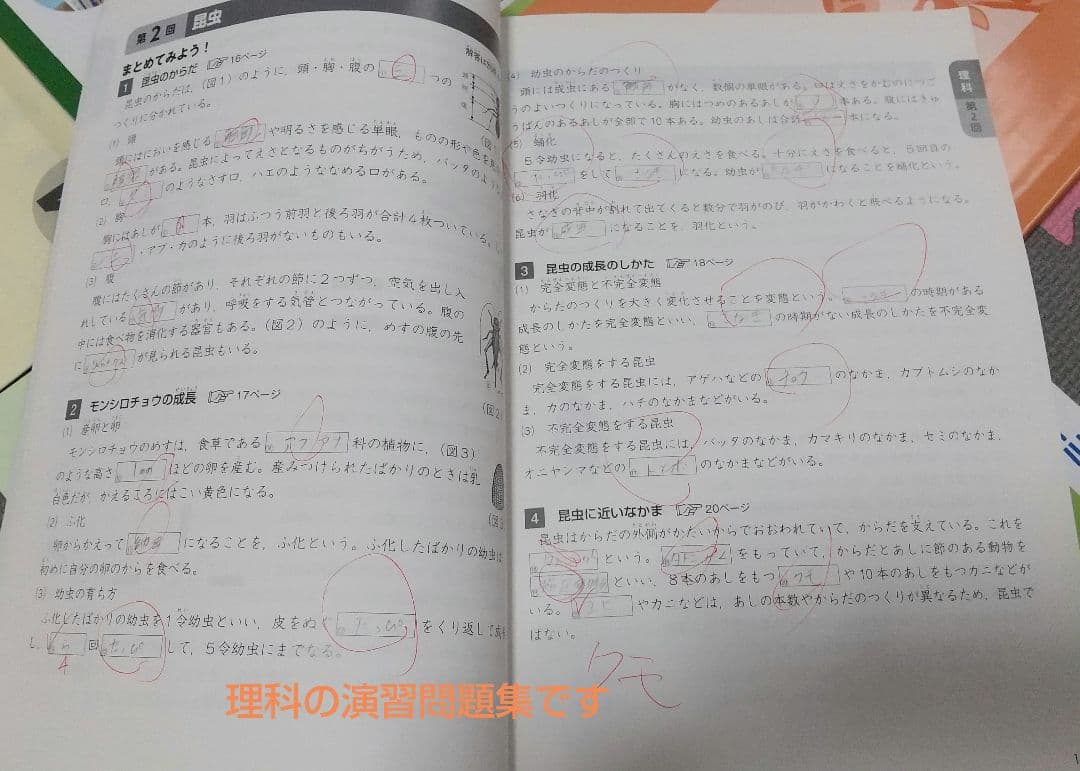 第2回 昆虫
まとめてみよう!
1 昆虫のからだ 16ページ
昆虫のからだは,(図1)のように,頭・胸・腹の 三 つの
つくりに分かれている。
(1) 頭
頭にはにおいを感じる や明るさを感じる単眼,ものの形や色を
がある。昆虫によってえさとなるものがちがうため,バッタのような
口, のようなさす口,ハエのようなためる口がある。
(2) 胸
胸にはあしが 本,羽はふつう前羽と後ろ羽が合計4枚ついている。
,アブ・カのように後ろ羽がないものもいる。
(3) 腹
腹にはたくさんの節があり,それぞれの節に2つずつ,空気を出し入
れしている があり,呼吸をする気管とつながっている。腹の
中には食べ物を消化する器官もある。(図2)のように,めすの腹の先
に が見られる昆虫もいる。
2 モンシロチョウの成長 17ページ
(1) 産卵と卵
モンシロチョウのめすは,食草である アブラナ 科の植物に,(図3)
のような高さ 1mm ほどの卵を産む。産みつけられたばかりのときは乳
白色だが,かえるころにはこい黄色になる。
(2) ふ化
卵からかえって 幼虫 になることを,ふ化という。ふ化したばかりの幼虫は
初めに自分の卵のからを食べる。
(3) 幼虫の育ち方
ふ化したばかりの幼虫を1令幼虫といい,皮をぬぐ だっぴ をくり返して成
し, 回 だっぴ して,5令幼虫にまでなる。
4
(図1
(図2
(図3
(4) 幼虫のからだのつくり
頭には成虫にある がなく,数個の単眼がある。口はえさをかむのにつご
うのよいつくりになっている。胸にはつめのあるあしが 本ある。腹にはきゅ
うばんのあるあしが全部で10本ある。幼虫のあしは合計 本になる。
(5) 蛹化
5令幼虫になると,たくさんのえさを食べる。十分にえさを食べると,5回目の
だっぴ をして になる。幼虫が になることを蛹化という。
(6) 羽化
さなぎの背中が割れて出てくると数分で羽がのび,羽がかわくと飛べるようになる。
昆虫が 成虫 になることを,羽化という。
理科 第2回
3 昆虫の成長のしかた 18ページ
(1) 完全変態と不完全変態
からだのつくりを大きく変化させることを変態という。 の時期がある
成長のしかたを完全変態といい, の時期がない成長のしかたを不完全変
態という。
(2) 完全変態をする昆虫
完全変態をする昆虫には,アゲハなどの チョウ のなかま,カブトムシのなか
ま,カのなかま,ハチのなかまなどがいる。
(3) 不完全変態をする昆虫
不完全変態をする昆虫には,バッタのなかま,カマキリのなかま,セミのなかま,
オニヤンマなどの トンボ のなかまなどがいる。
4 昆虫に近いなかま 20ページ
昆虫はからだの外側がかたいからでおおわれていて,からだを支えている。これを
という。 をもっていて,からだとあしに節のある動物を
といい,8本のあしをもつ クモ や10本のあしをもつカニなどが
いる。 やカニなどは,あしの本数やからだのつくりが異なるため,昆虫で
はない。
クモ
理科の演習問題集です